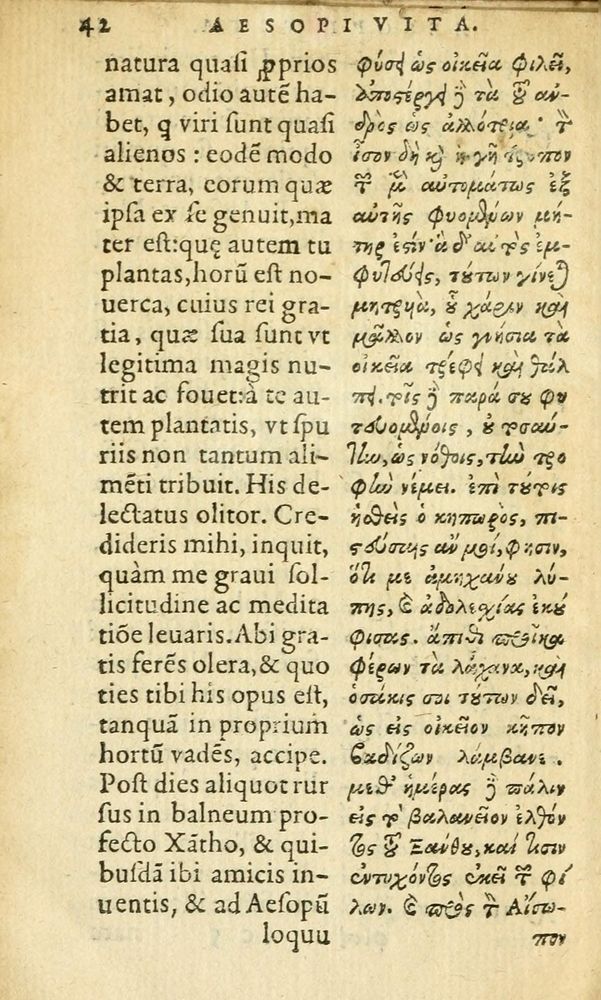 42 AESOPI VITA.
natura quasi ꝓprios
amat, odio autē ha-
bet, q̃ viri sunt quasi
alienos : eodē modo
& terra, eorum quæ
ipsa ex se genuit, ma
ter est: quę autem tu
plantas, horū est no-
uerca, cuius rei gra-
tia, quæ sua sunt vt
legitima magis nu-
trit ac fouet: à te au-
tem plantatis, vt spu
riis non tantum ali-
mēti tribuit. His de-
lectatus olitor. Cre-
dideris mihi, inquit,
quàm me graui sol-
licitudine ac medita
tiōe leuaris. Abi gra-
tis ferēs olera, & quo
ties tibi his opus est,
tanquā in proprium
hortū vadēs, accipe.
Post dies aliquot rur
sus in balneum pro-
fecto Xātho, & qui-
busdā ibi amicis in-
uentis, & ad Aesopū
loquu
φύσει ὡς οἰκεῖα φιλεῖ,
ἀποστέργει δὲ τὰ τοῦ ἀν-
δρὸς ὡς ἀλλότρια· τὸν
ἴσον δὴ καὶ ἡ γῆ τρόπον
τῶν μὲν αὐτομάτως ἐξ
αὐτῆς φυομένων μή-
τηρ ἐστίν· ἃ δ' αὐτὸς ἐμ-
φυτεύεις, τούτων γίνεται
μητρυιὰ, οὗ χάριν καὶ
μᾶλλον ὡς γνήσια τὰ
οἰκεῖα τρέφει καὶ θάλ
πει. τοῖς δὲ παρά σου φυ
τευομένοις, οὐ τοσαύ-
την, ὡς νόθοις, τὴν τρο
φὴν νέμει. ἐπὶ τούτοις
ἡσθεὶς ὁ κηπωρὸς, πι-
στεύσῃς ἄν μοι, φησὶν,
ὅτι με ἀμηχάνου λύ-
πης, καὶ ἀδολεσχίας ἐκού
φισας. ἄπιθι προῖκα
φέρων τὰ λάχανα, καὶ
ὁσάκις σοι τούτων δεῖ,
ὡς εἰς οἰκεῖον κῆπον
βαδίζων λάμβανε.
μεθ' ἡμέρας δὲ πάλιν
εἰς τὸ βαλανεῖον ἐλθόν
τος τοῦ Ξάνθου, καί τισιν
ἐντυχόντος ἐκεῖ τῶν φί
λων. καὶ πρὸς τὸν Αἴσω-
πον